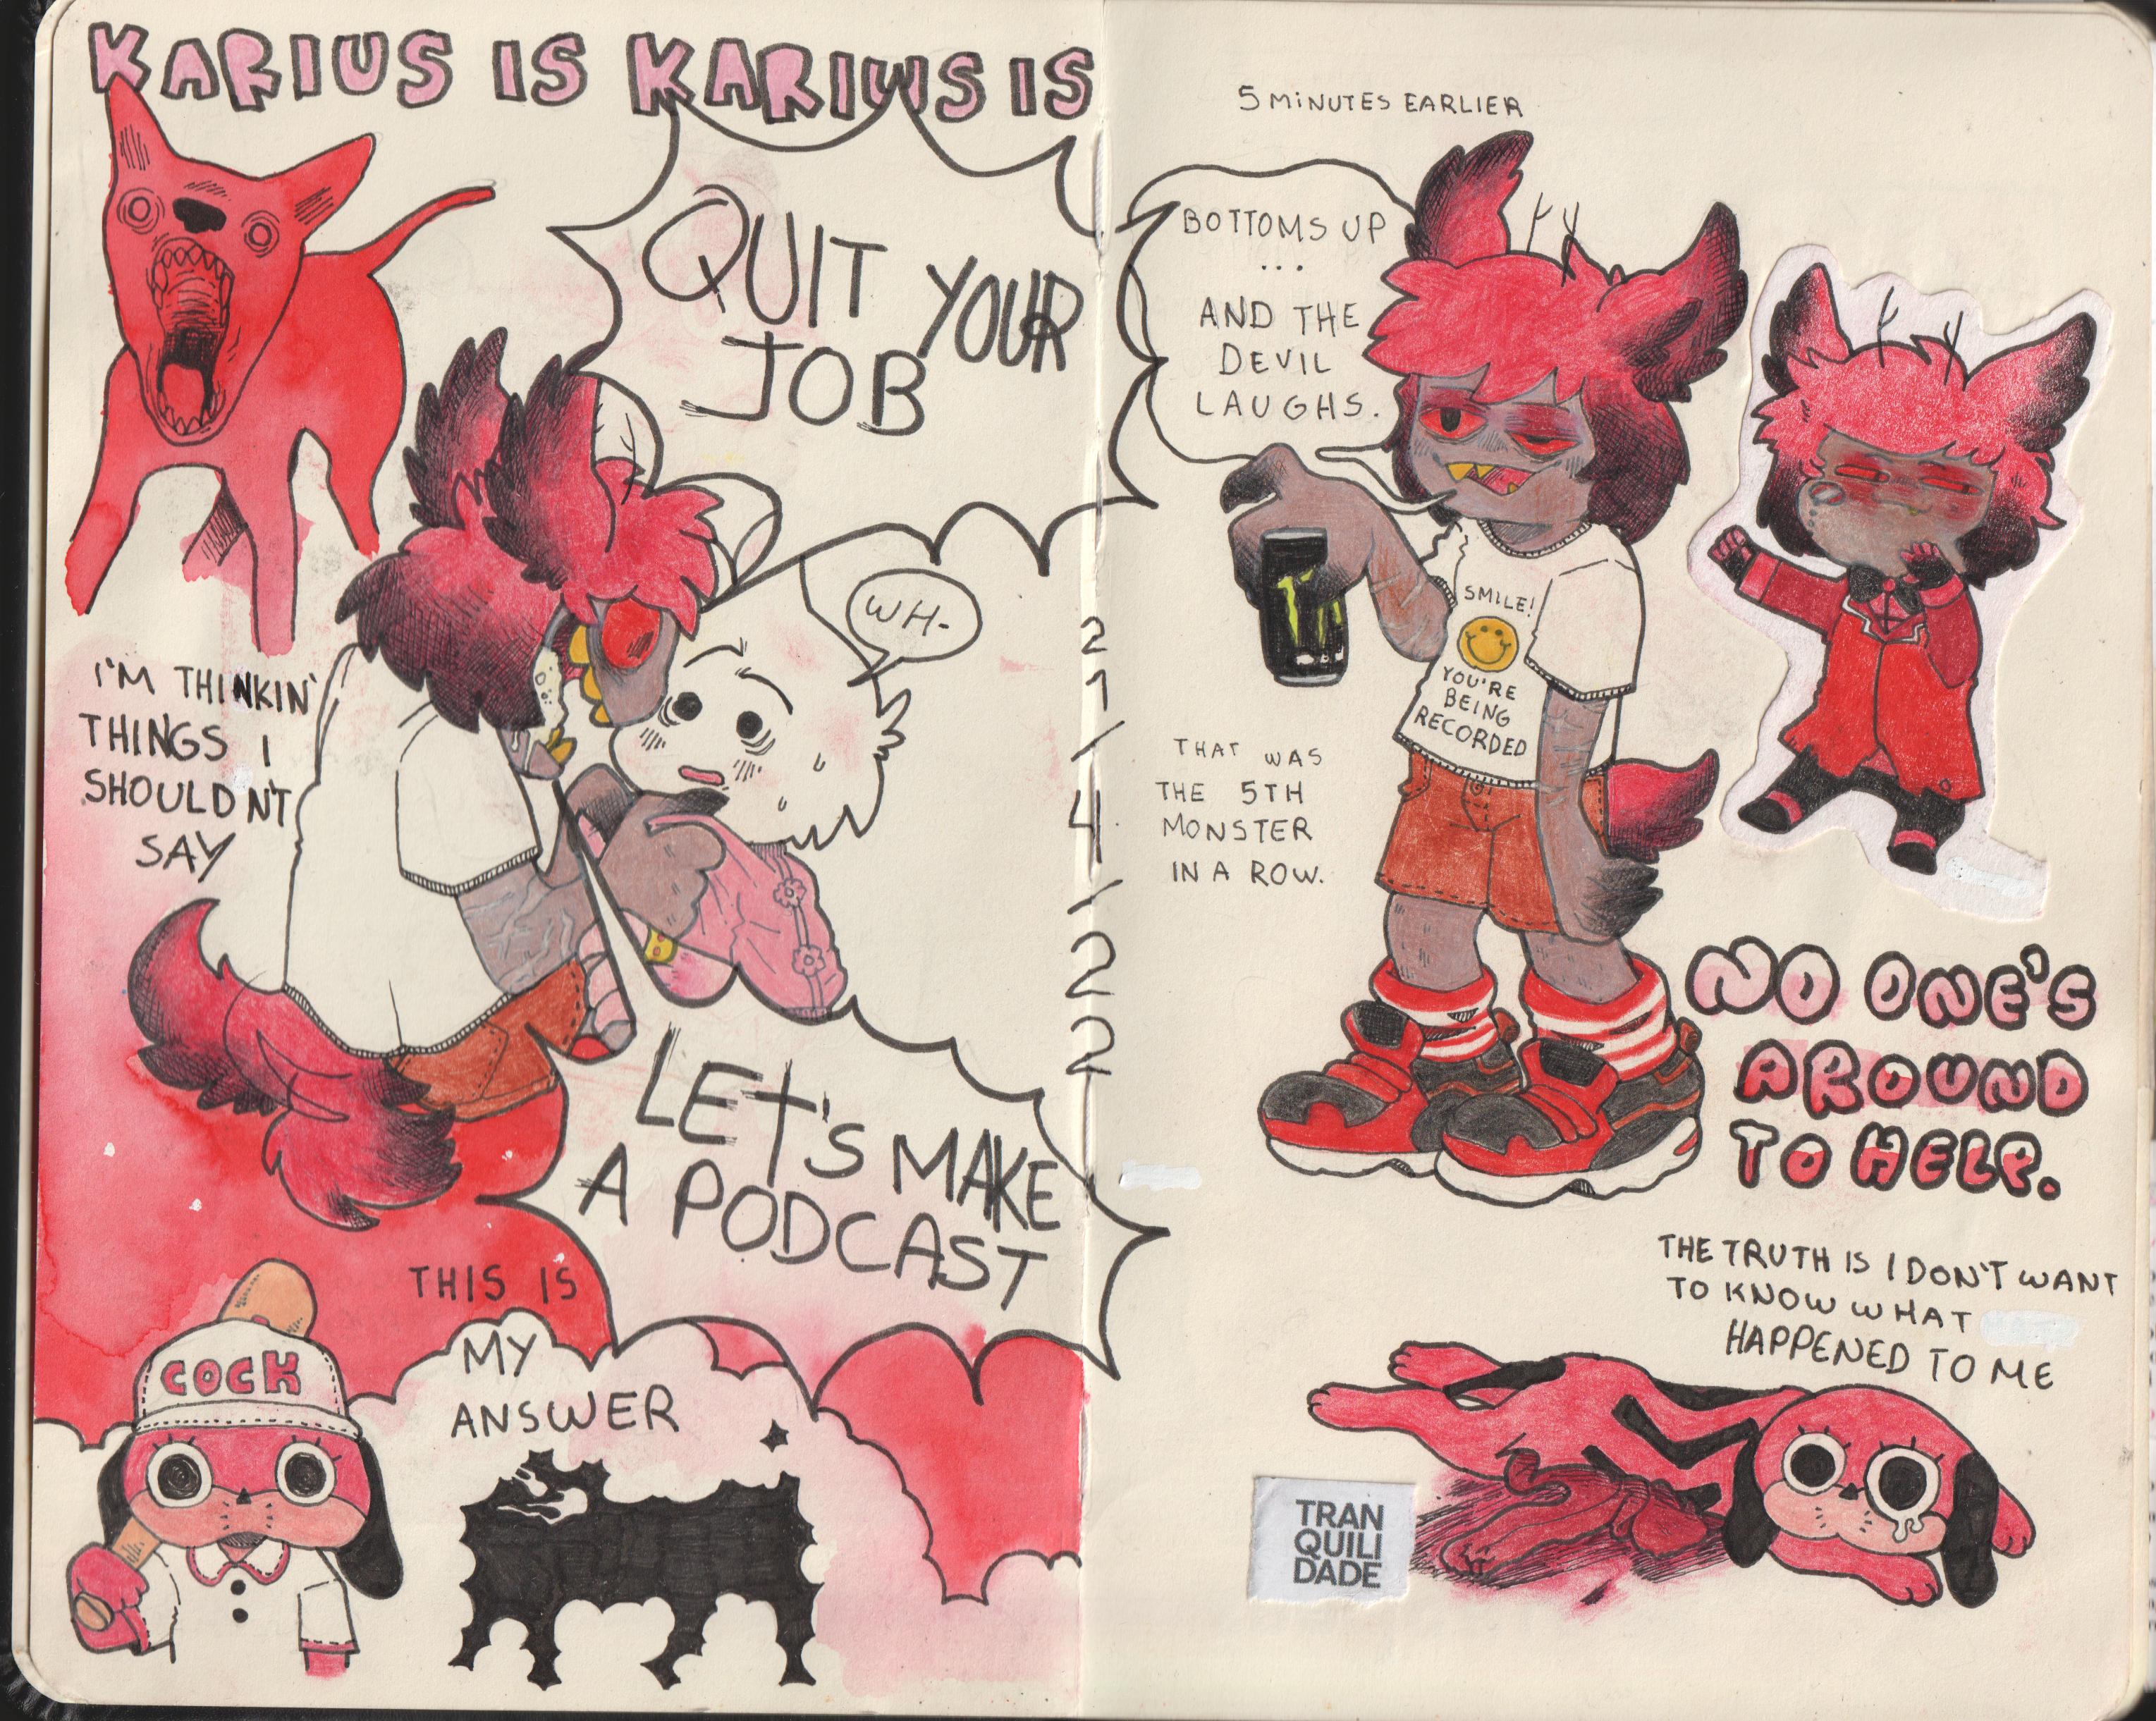 KARIUS IS KARIUS IS
QUIT YOUR
JOB
WH-
I'M THINKIN'
THINGS I
SHOULDN'T
SAY
LET'S MAKE
A PODCAST
THIS IS
MY
ANSWER
COCK
27/4/22
5 MINUTES EARLIER
BOTTOMS UP
...
AND THE
DEVIL
LAUGHS.
SMILE!
YOU'RE
BEING
RECORDED
THAT WAS
THE 5TH
MONSTER
IN A ROW.
NO ONE'S
AROUND
TO HELP.
THE TRUTH IS I DON'T WANT
TO KNOW WHAT
HAPPENED TO ME
TRAN
QUILI
DADE